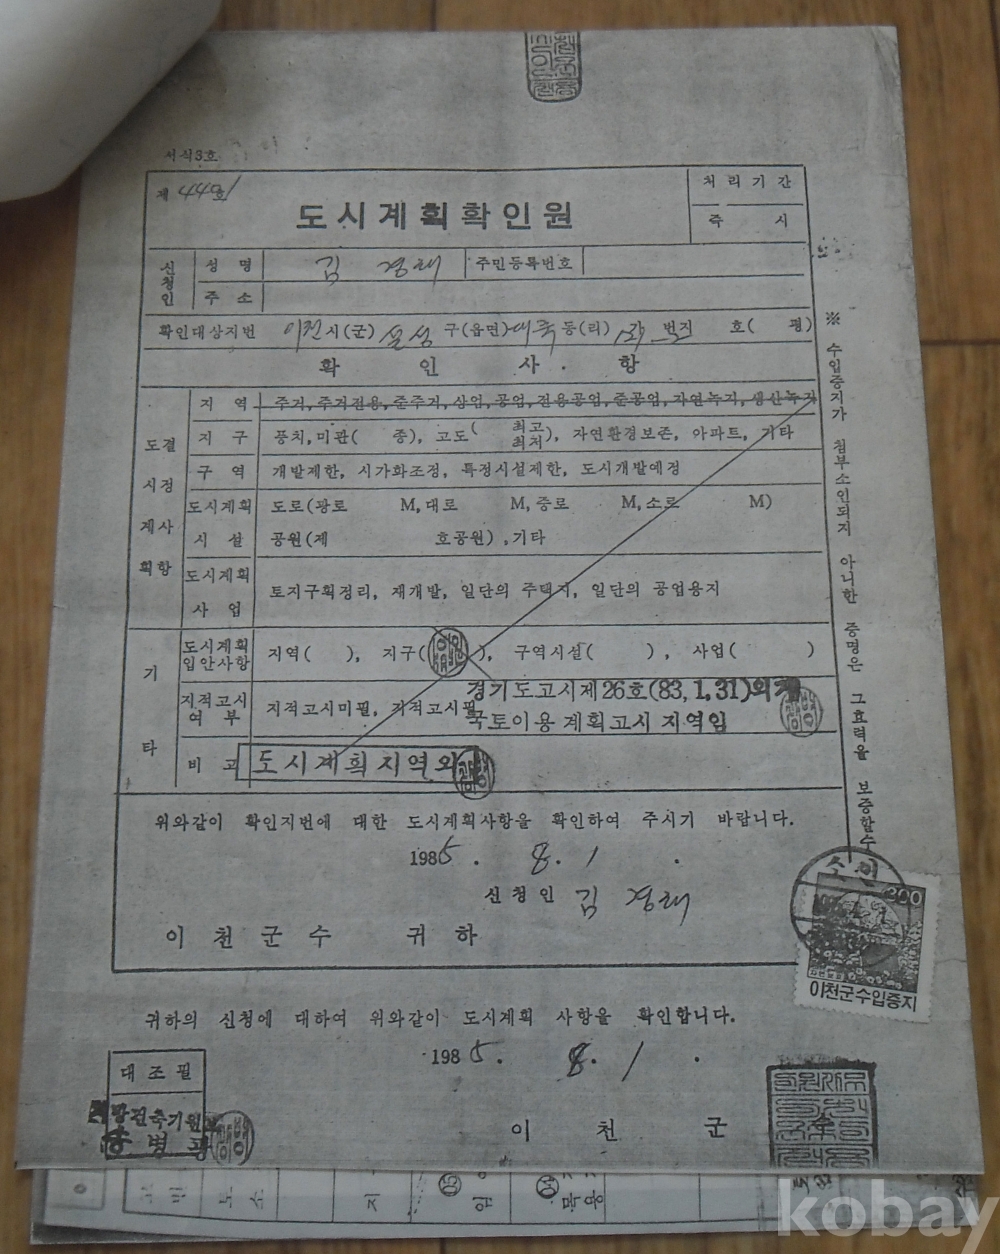 서식3호
제 4401호
도시계획확인원
처리기간
즉 시
신청인
성 명 김 경래 주민등록번호
주 소
확인대상지번 이천시(군) 설성 구(읍면) 대죽 동(리) 번지 호( 평)
확 인 사 항
도시계획 결정사항
지 역 주거, 주거전용, 준주거, 상업, 공업, 전용공업, 준공업, 자연녹지, 생산녹지
지 구 풍치, 미관( 종), 고도(최고 최저), 자연환경보존, 아파트, 기타
구 역 개발제한, 시가화조정, 특정시설제한, 도시개발예정
도시계획 도로(광로 M, 대로 M, 중로 M, 소로 M)
시 설 공원(제 호공원), 기타
도시계획
사 업 토지구획정리, 재개발, 일단의 주택지, 일단의 공업용지
기 타
도시계획
입안사항 지역( ), 지구( ), 구역시설( ), 사업( )
지적고시
여 부 지적고시미필, 지적고시필
경기도고시제26호(83,1,31)의거
국토이용계획고시 지역임
비 고 도시계획지역외
※ 수입증지가 첨부소인되지 아니한 증명은 그효력을 보증할수
위와같이 확인지번에 대한 도시계획사항을 확인하여 주시기 바랍니다.
1985. 8. 1 .
신청인 김 경래
이천군수 귀하
소인
200
이천군수입증지
귀하의 신청에 대하여 위와같이 도시계획 사항을 확인합니다.
1985. 8. 1 .
대조필
지방건축기원보
이 천 군 수
kobay